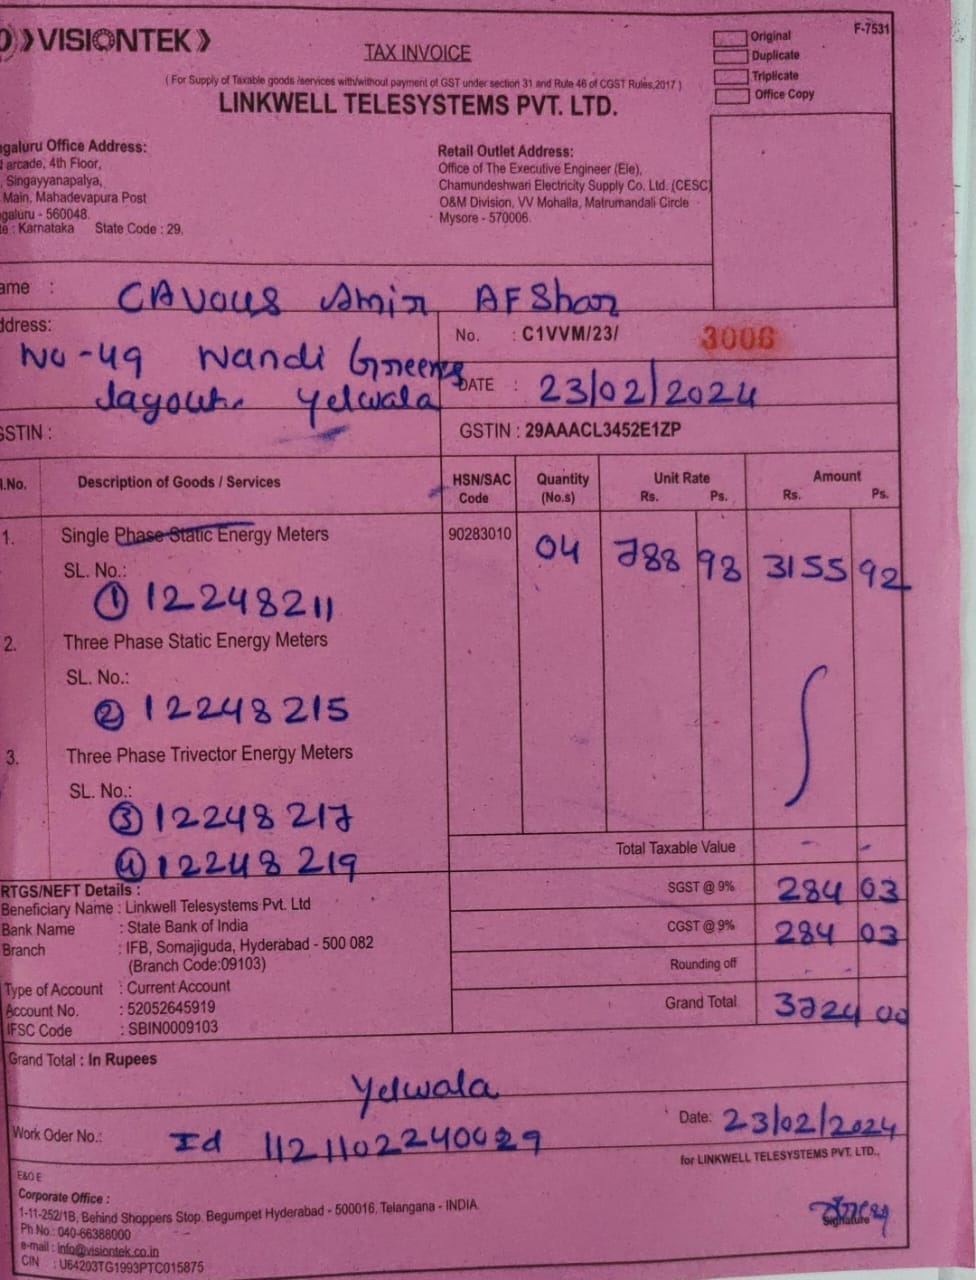 VISIONTEK
F-7531
TAX INVOICE
Original
Duplicate
Triplicate
Office Copy
( For Supply of Taxable goods /services with/without payment of GST under section 31 and Rule 46 of CGST Rules,2017 )
LINKWELL TELESYSTEMS PVT. LTD.
ngaluru Office Address:
arcade, 4th Floor,
Singayyanapalya,
Main, Mahadevapura Post
galuru - 560048.
te : Karnataka State Code : 29,
Retail Outlet Address:
Office of The Executive Engineer (Ele),
Chamundeshwari Electricity Supply Co. Ltd. (CESC)
O&M Division, VV Mohalla, Matrumandali Circle
Mysore - 570006.
ame : CAVOUS Amir AFShar
ddress:
No -49 Nandi Greens
layout. Yelwala
No. : C1VVM/23/ 3006
DATE : 23/02/2024
GSTIN :
GSTIN : 29AAACL3452E1ZP
l.No. Description of Goods / Services HSN/SAC Code Quantity (No.s) Unit Rate Rs. Ps. Amount Rs. Ps.
1. Single Phase Static Energy Meters 90283010 04 788 98 3155 92
SL. No.:
① 12248211
2. Three Phase Static Energy Meters
SL. No.:
② 12248215
3. Three Phase Trivector Energy Meters
SL. No.:
③ 12248217
④ 12248219
Total Taxable Value - -
SGST @ 9% 284 03
CGST @ 9% 284 03
Rounding off - -
Grand Total 3724 00
RTGS/NEFT Details :
Beneficiary Name : Linkwell Telesystems Pvt. Ltd
Bank Name : State Bank of India
Branch : IFB, Somajiguda, Hyderabad - 500 082
(Branch Code:09103)
Type of Account : Current Account
Account No. : 52052645919
IFSC Code : SBIN0009103
Grand Total : In Rupees
Yelwala
Work Oder No.: Id 1121102240029
Date: 23/02/2024
for LINKWELL TELESYSTEMS PVT. LTD.,
E&O E
Corporate Office :
1-11-252/1B, Behind Shoppers Stop, Begumpet Hyderabad - 500016, Telangana - INDIA.
Ph No.: 040-66388000
e-mail : info@visiontek.co.in
CIN : U64203TG1993PTC015875
Signature